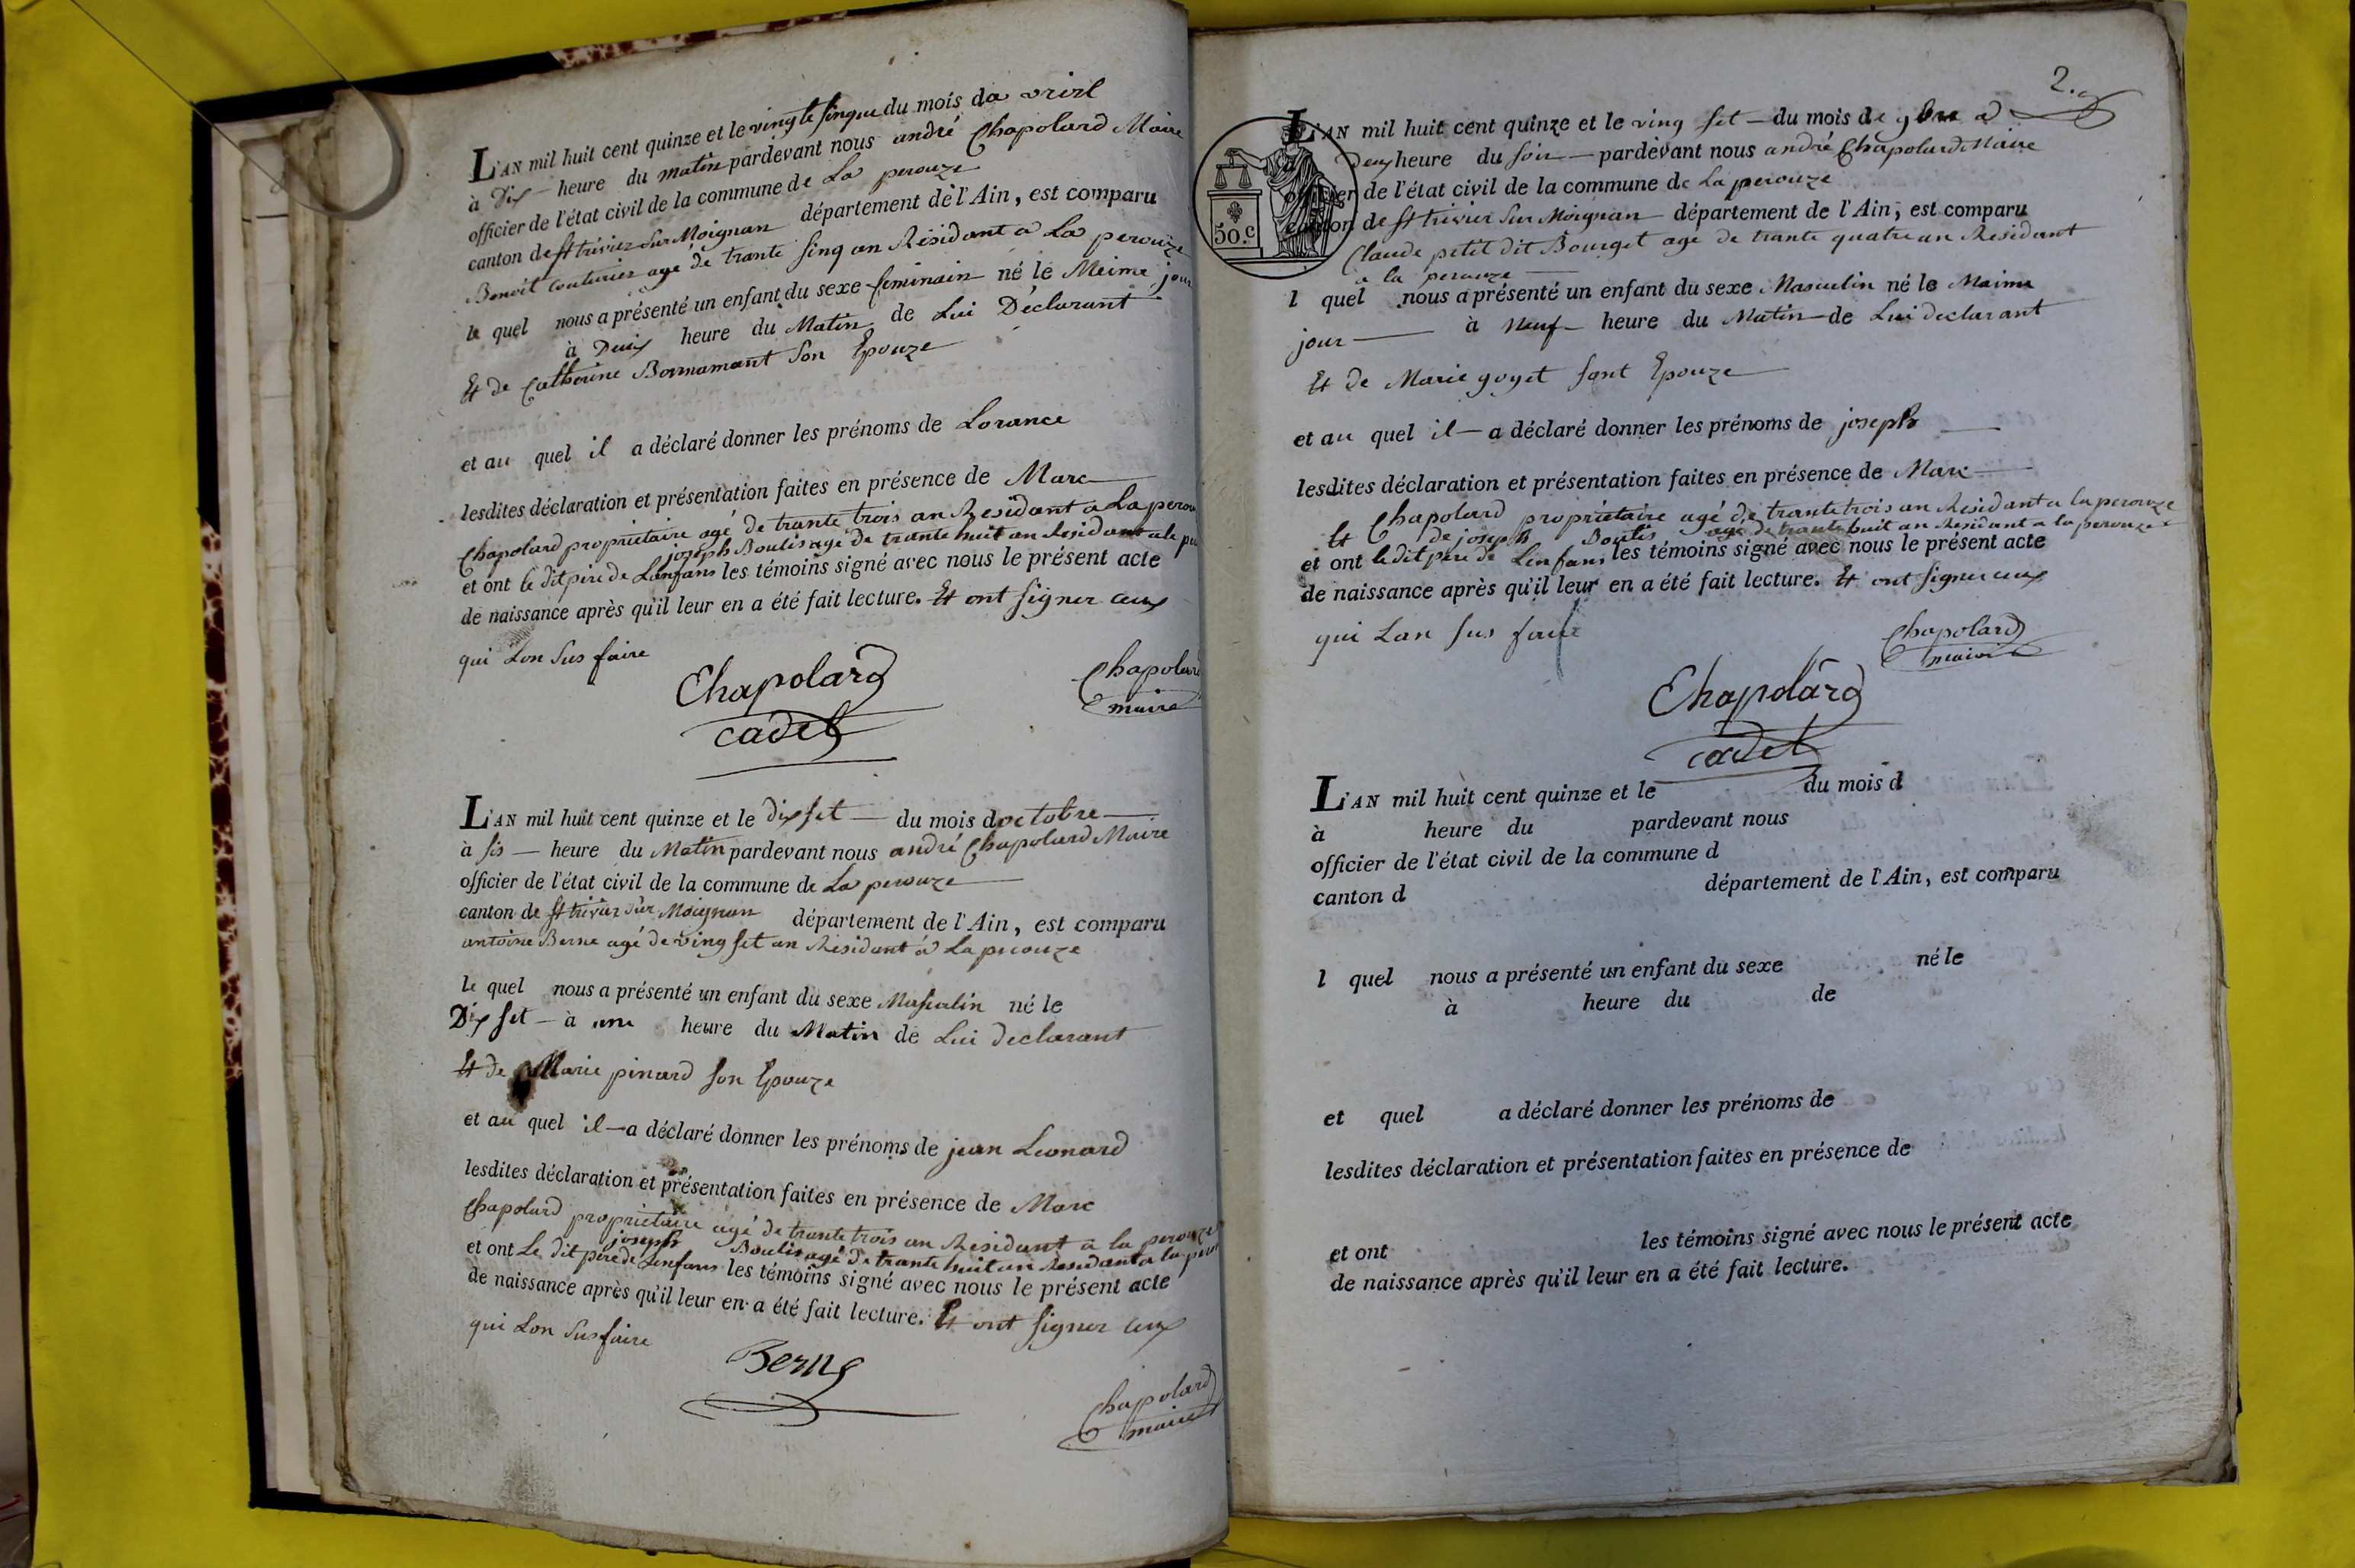 L'AN mil huit cent quinze et le vingte sinque du mois da vriril
à Dix heure du matin pardevant nous andré Chapolard Maire
officier de l'état civil de la commune de La perouze
canton de st trivier sur Moignan département de l'Ain, est comparu
Benoit couturier agé de trante sinq an Résidant a La perouze
le quel nous a présenté un enfant du sexe feminain né le Meime jour
à Deux heure du Matin de Lui Déclarant
Et de Catherine Bonnamant son Epouze
et au quel il a déclaré donner les prénoms de Lorance
lesdites déclaration et présentation faites en présence de Marc
Chapolard propriétaire agé de trante trois an Residant a La perou
joseph Boulis agé de trante huit an Residant ala pe
et ont le dit père de Lenfans les témoins signé avec nous le présent acte
de naissance après qu'il leur en a été fait lecture. Et ont signer ceux
qui Lon sus faire
Chapolard
cadet
Chapolard
maire
L'AN mil huit cent quinze et le dix set du mois doctobre
à sis heure du Matin pardevant nous andré Chapolard Maire
officier de l'état civil de la commune de La perouze
canton de st trivier sur Moignan département de l'Ain, est comparu
antoine Berne agé de ving set an Residant à La perouze
le quel nous a présenté un enfant du sexe Masculin né le
Dix set à une heure du Matin de Lui declarant
Et de Marie pinard son Epouze
et au quel il a déclaré donner les prénoms de jean Leonard
lesdites déclaration et présentation faites en présence de Marc
Chapolard propriétaire agé de trante trois an Residant a la perouze
joseph Boulis agé de trante huit an Residant a la perou
et ont Le dit père de Lenfans les témoins signé avec nous le présent acte
de naissance après qu'il leur en a été fait lecture. Et ont signer ceux
qui Lon sus faire
Berne
Chapolard
maire
2.
50.c
L'AN mil huit cent quinze et le ving set du mois de 9bre a
Deux heure du soir pardevant nous andré Chapolard Maire
officier de l'état civil de la commune de La perouze
canton de st trivier sur Moignan département de l'Ain, est comparu
Claude petit dit Bourget agé de trante quatre an Residant
a la perouze
l quel nous a présenté un enfant du sexe Masculin né le Maime
jour à neuf heure du Matin de Lui declarant
Et de Marie goyet sont Epouze
et au quel il a déclaré donner les prénoms de joseph
lesdites déclaration et présentation faites en présence de Marc
Chapolard propriétaire agé de trante trois an Residant a la perouze
Et de joseph Boulis agé de trante huit an Residant a la perouze
et ont le dit père de Lenfans les témoins signé avec nous le présent acte
de naissance après qu'il leur en a été fait lecture. Et ont signer ceux
qui Lan sus faire
Chapolard
maire
Chapolard
cadet
L'AN mil huit cent quinze et le du mois d
à heure du pardevant nous
officier de l'état civil de la commune d
canton d département de l'Ain, est comparu
l quel nous a présenté un enfant du sexe né le
à heure du de
et quel a déclaré donner les prénoms de
lesdites déclaration et présentation faites en présence de
et ont les témoins signé avec nous le présent acte
de naissance après qu'il leur en a été fait lecture.